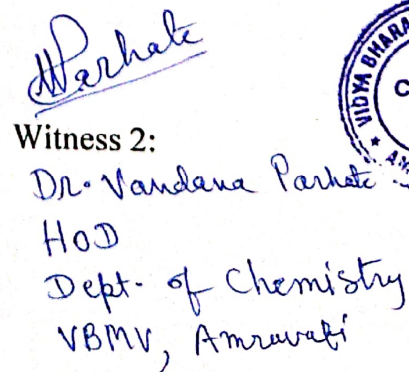 Parhate
VIDYA BHARA
Witness 2:
Dr. Vandana Parhate
HOD
Dept. of Chemistry
VBMV, Amravati